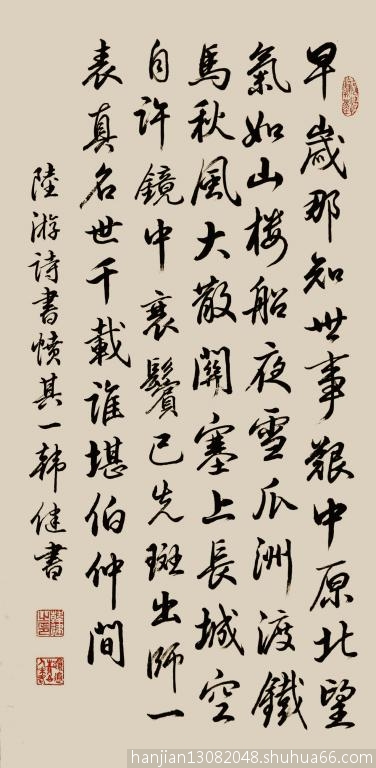 早歲那知世事艱中原北望
氣如山樓船夜雪瓜洲渡鐵
馬秋風大散關塞上長城空
自許鏡中衰鬢已先斑出師一
表真名世千載誰堪伯仲間
陸游詩書憤其一韩健書
hanjian13082048.shuhua66.com